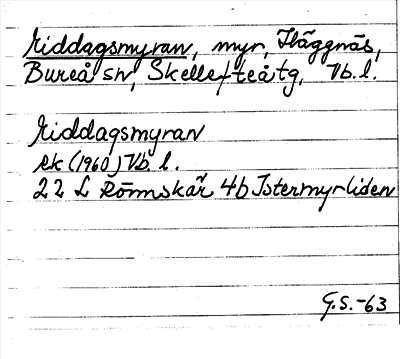 Middagsmyran, myr, Häggnäs,
Bureå sn, Skellefteå tg, Vb. l.
Middagsmyran
Ek (1960) Vb. l.
22 L Rönnskär 4b Istermyrliden
G.S.-63